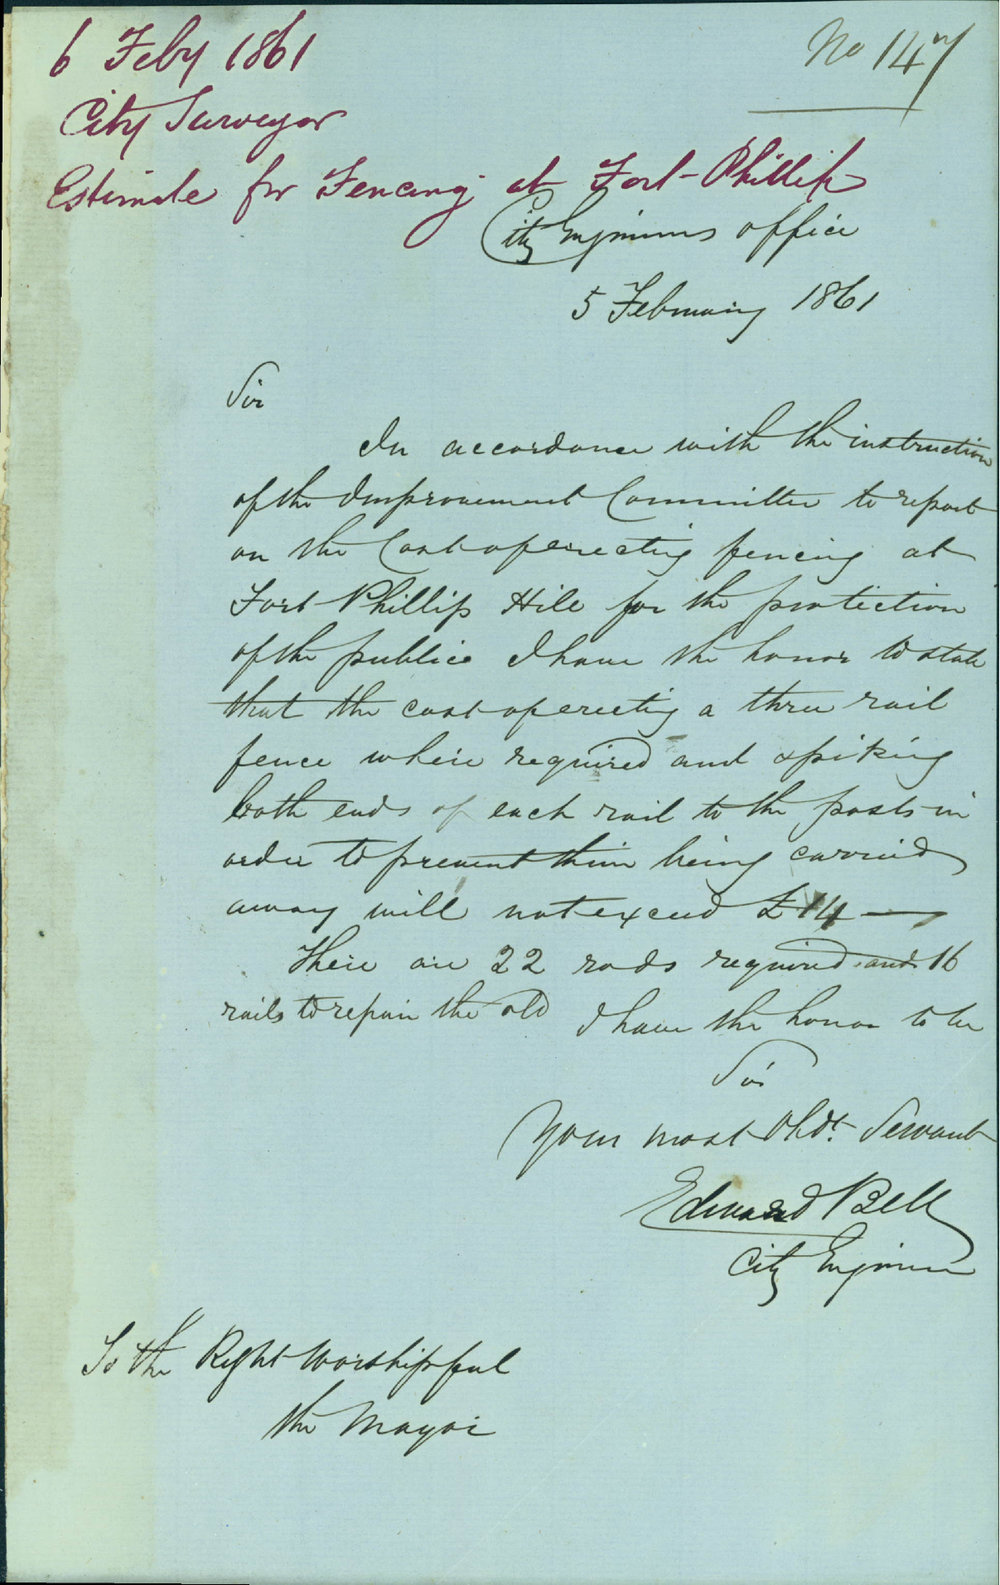 6 Feby 1861
No 147
City Surveyor
Estimate for Fencing at Fort Phillip
City Engineers office
5 February 1861
Sir
In accordance with the instruction
of the Improvement Committee to report
on the Cost of erecting fencing at
Fort Phillip Hill for the protection
of the public I have the honor to state
that the cost of erecting a three rail
fence where required and spiking
both ends of each rail to the posts in
order to prevent them being carried
away will not exceed £14 —
There are 22 rods required and 16
rails to repair the old
I have the honor to be
Sir
Your most Obdt. Servant
Edward Bell
City Engineer
To the Right Worshipful
the Mayor